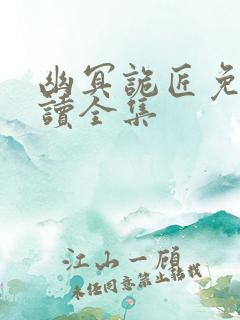 幽冥詭匠免
讀全集
江山一顧
未经同意禁止转载